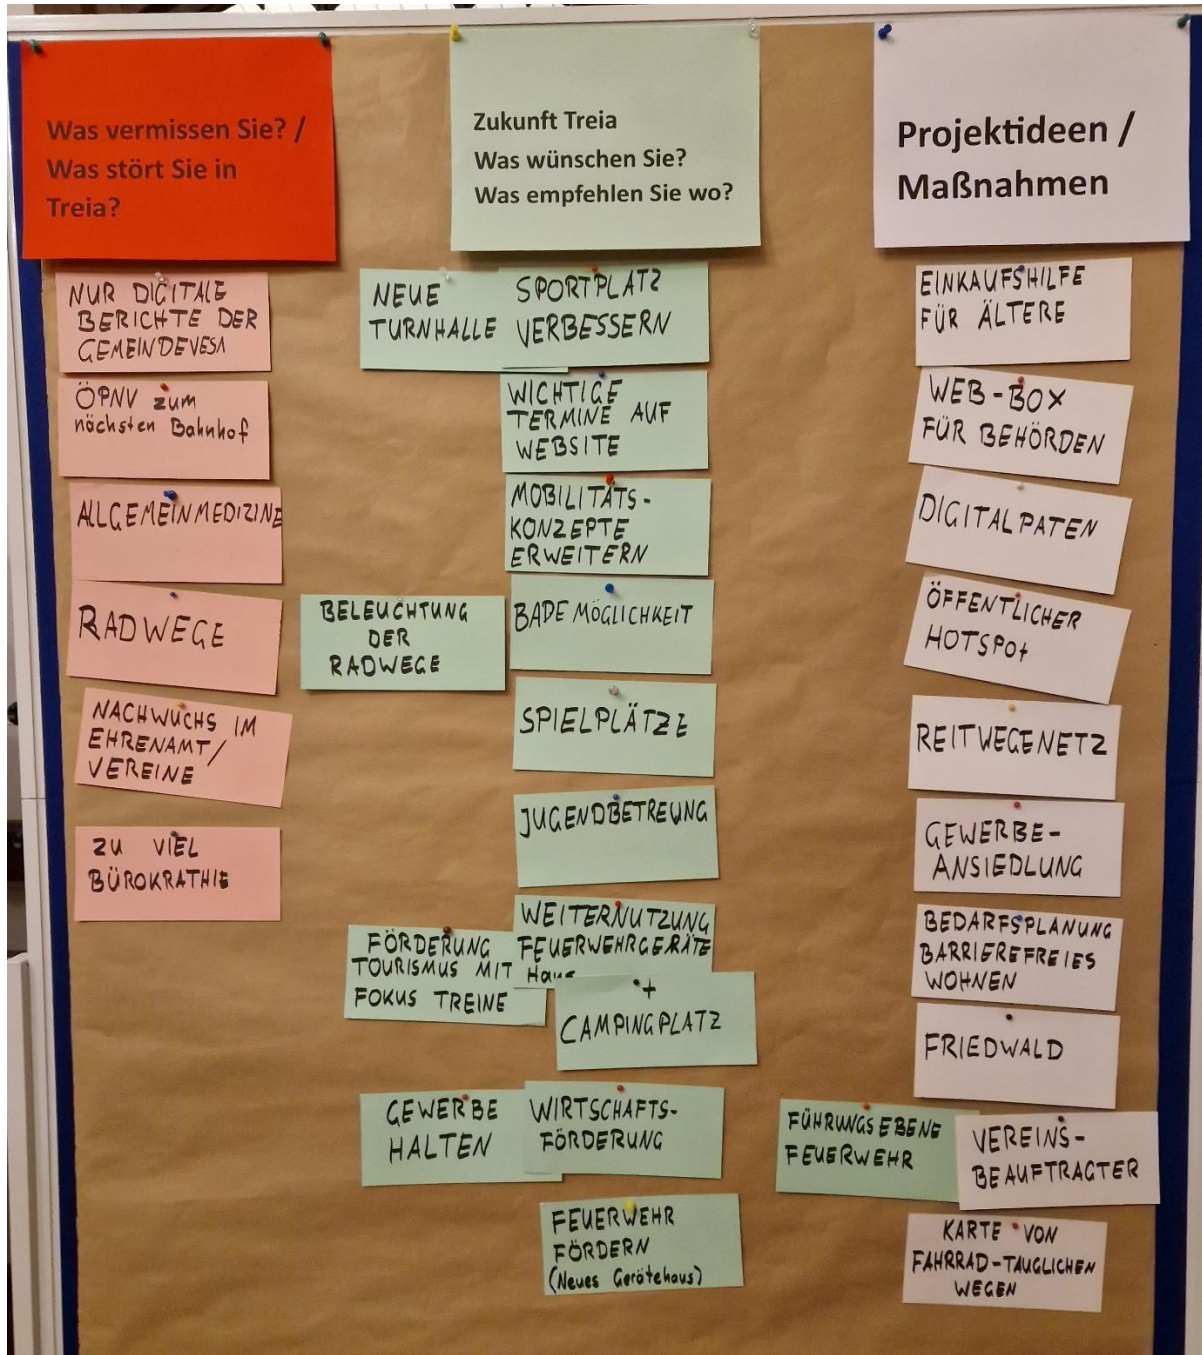 Was vermissen Sie? /
Was stört Sie in
Treia?
NUR DIGITALE
BERICHTE DER
GEMEINDEVESA
ÖPNV zum
nächsten Bahnhof
ALLGEMEINMEDIZINE
RADWEGE
NACHWUCHS IM
EHRENAMT/
VEREINE
ZU VIEL
BÜROKRATHIE
Zukunft Treia
Was wünschen Sie?
Was empfehlen Sie wo?
NEUE
TURNHALLE
SPORTPLATZ
VERBESSERN
WICHTIGE
TERMINE AUF
WEBSITE
MOBILITÄTS-
KONZEPTE
ERWEITERN
BELEUCHTUNG
DER
RADWEGE
BADEMÖGLICHKEIT
SPIELPLÄTZE
JUGENDBETREUNG
FÖRDERUNG
TOURISMUS MIT
FOKUS TREINE
WEITERNUTZUNG
FEUERWEHRGERÄTE
Haus
+
CAMPINGPLATZ
GEWERBE
HALTEN
WIRTSCHAFTS-
FÖRDERUNG
FEUERWEHR
FÖRDERN
(Neues Gerätehaus)
Projektideen /
Maßnahmen
EINKAUFSHILFE
FÜR ÄLTERE
WEB-BOX
FÜR BEHÖRDEN
DIGITALPATEN
ÖFFENTLICHER
HOTSPOt
REITWEGENETZ
GEWERBE-
ANSIEDLUNG
BEDARFSPLANUNG
BARRIEREFREIES
WOHNEN
FRIEDWALD
FÜHRUNGSEBENE
FEUERWEHR
VEREINS-
BEAUFTRAGTER
KARTE VON
FAHRRAD-TAUGLICHEN
WEGEN